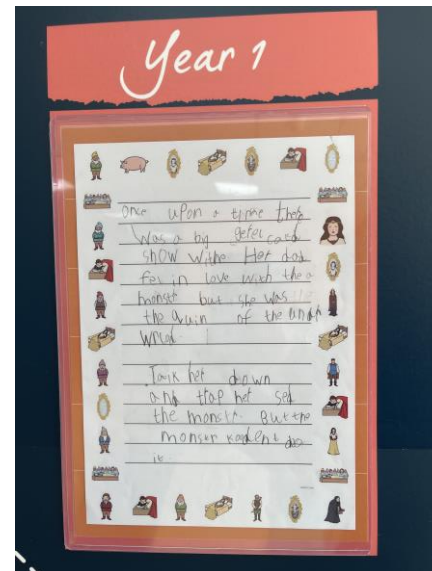 Year 1
Once upon a time ther
Was a by gefer cald
show withe Her dad
fel in love with the a
monstr but she was
the quin of the undr
Wrld
Took her down
and trap her sed
the monstr. But the
monstr koodent do
it